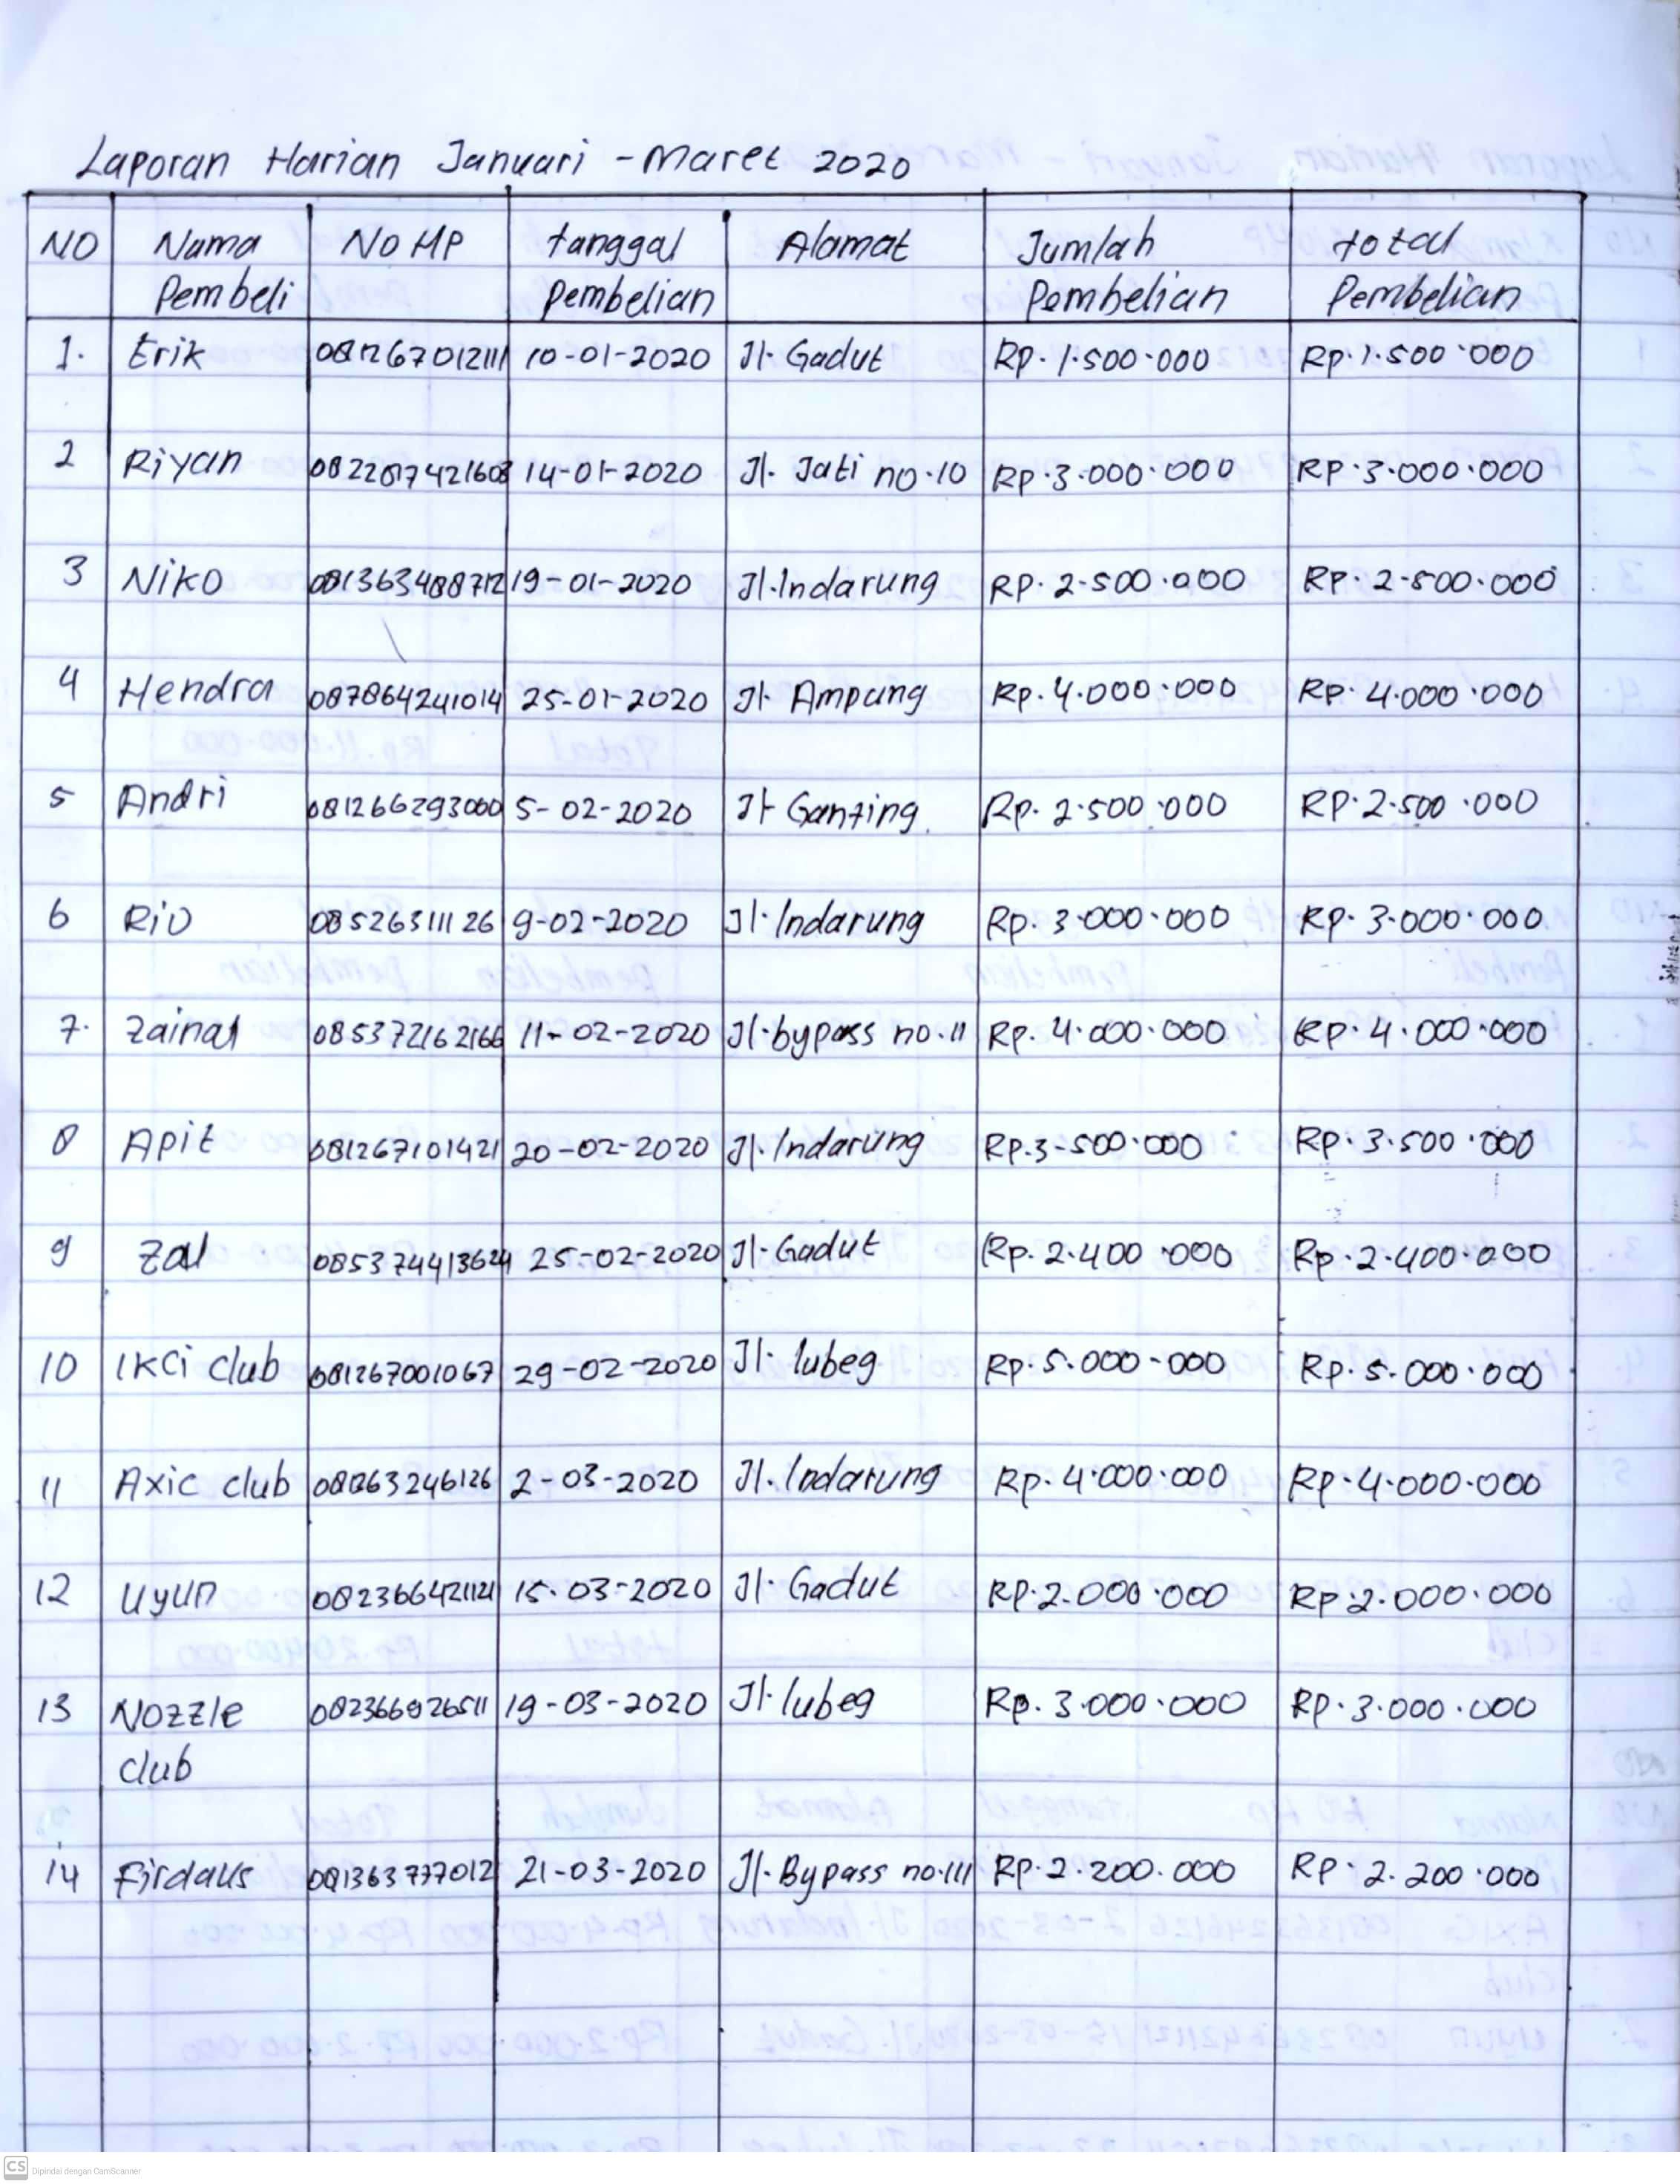 Laporan Harian Januari - Maret 2020
NO Nama Pembeli No HP tanggal pembelian Alamat Jumlah Pembelian total Pembelian
1. Erik 081267012111 10-01-2020 Jl. Gadut Rp. 1.500.000 Rp. 1.500.000
2 Riyan 14-01-2020 Jl. Jati no.10 Rp.3.000.000 Rp.3.000.000
3 Niko 081363488712 19-01-2020 Jl.Indarung Rp. 2.500.000 Rp. 2.500.000
4 Hendra 087864241014 25-01-2020 Jl. Ampang Rp. 4.000.000 Rp. 4.000.000
5 Andri 081266293000 5-02-2020 Jl Ganting Rp. 2.500.000 RP.2.500.000
6 Rio 08526311126 9-02-2020 Jl.Indarung Rp. 3.000.000 Rp. 3.000.000
7. Zainal 085372162166 11-02-2020 Jl.bypass no.11 Rp. 4.000.000 Rp. 4.000.000
8 Apit 081267101421 20-02-2020 Jl.Indarung Rp.3-500.000 Rp.3.500.000
9 Zal 085374413624 25-02-2020 Jl.Gadut Rp.2.400.000 Rp.2.400.000
10 IKCi club 081267001067 29-02-2020 Jl. lubeg Rp.5.000-000 Rp.5.000.000
11 Axic club 2-03-2020 Jl.Indarung Rp.4.000.000 Rp.4.000.000
12 Uyun 082366421121 15-03-2020 Jl.Gadut Rp.2.000.000 Rp.2.000.000
13 Nozzle 082366926511 19-03-2020 Jl.lubeg Rp. 3.000.000 Rp.3.000.000
club
14 Firdaus 081363777012 21-03-2020 Jl.Bypass no.111 Rp.2.200.000 Rp. 2.200.000
CS Dipindai dengan CamScanner